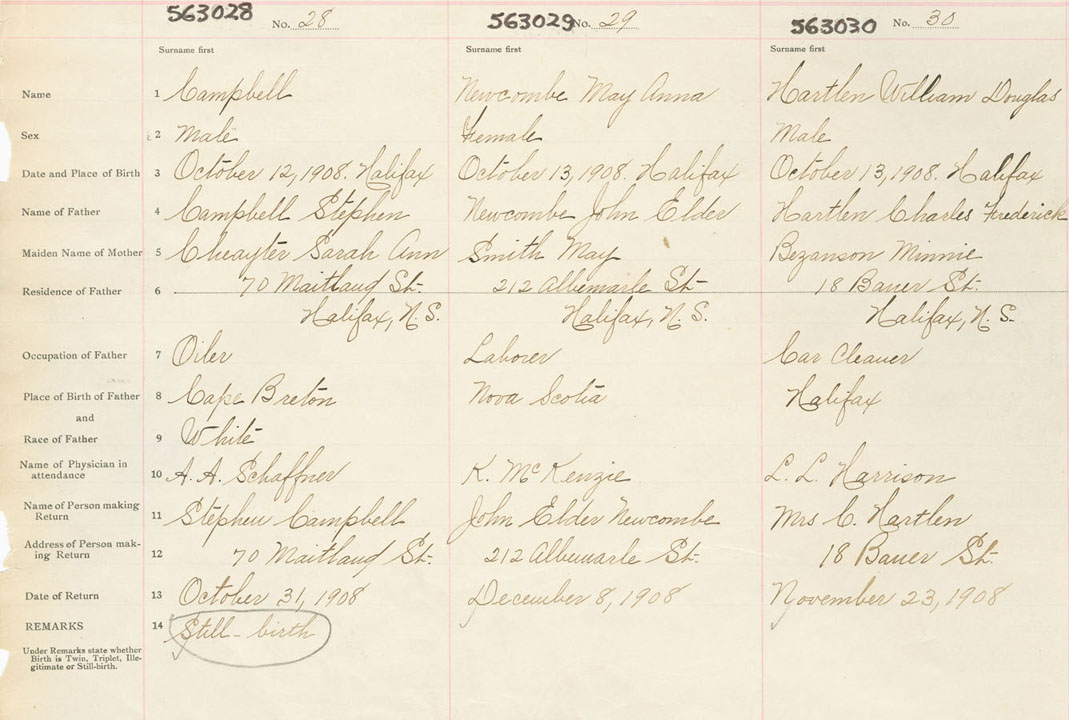 563028 No. 28 563029 No. 29 563030 No. 30
Surname first Surname first Surname first
Name 1 Campbell Newcombe May Anna Hartlen William Douglas
Sex 2 Male Female Male
Date and Place of Birth 3 October 12, 1908. Halifax October 13, 1908. Halifax October 13, 1908. Halifax
Name of Father 4 Campbell Stephen Newcombe John Elder Hartlen Charles Frederick
Maiden Name of Mother 5 Cheayter Sarah Ann Smith May Bezanson Minnie
Residence of Father 6 70 Maitland St. 212 Albemarle St. 18 Bauer St.
Halifax, N.S. Halifax, N.S. Halifax, N.S.
Occupation of Father 7 Oiler Laborer Car Cleaner
Place of Birth of Father 8 Cape Breton Nova Scotia Halifax
and
Race of Father 9 White
Name of Physician in
attendance 10 A. A. Schaffner K. McKenzie L. L. Harrison
Name of Person making
Return 11 Stephen Campbell John Elder Newcombe Mrs C. Hartlen
Address of Person mak-
ing Return 12 70 Maitland St. 212 Albemarle St. 18 Bauer St.
Date of Return 13 October 31, 1908 December 8, 1908 November 23, 1908
REMARKS 14 Still-birth
Under Remarks state whether
Birth is Twin, Triplet, Ille-
gitimate or Still-birth.